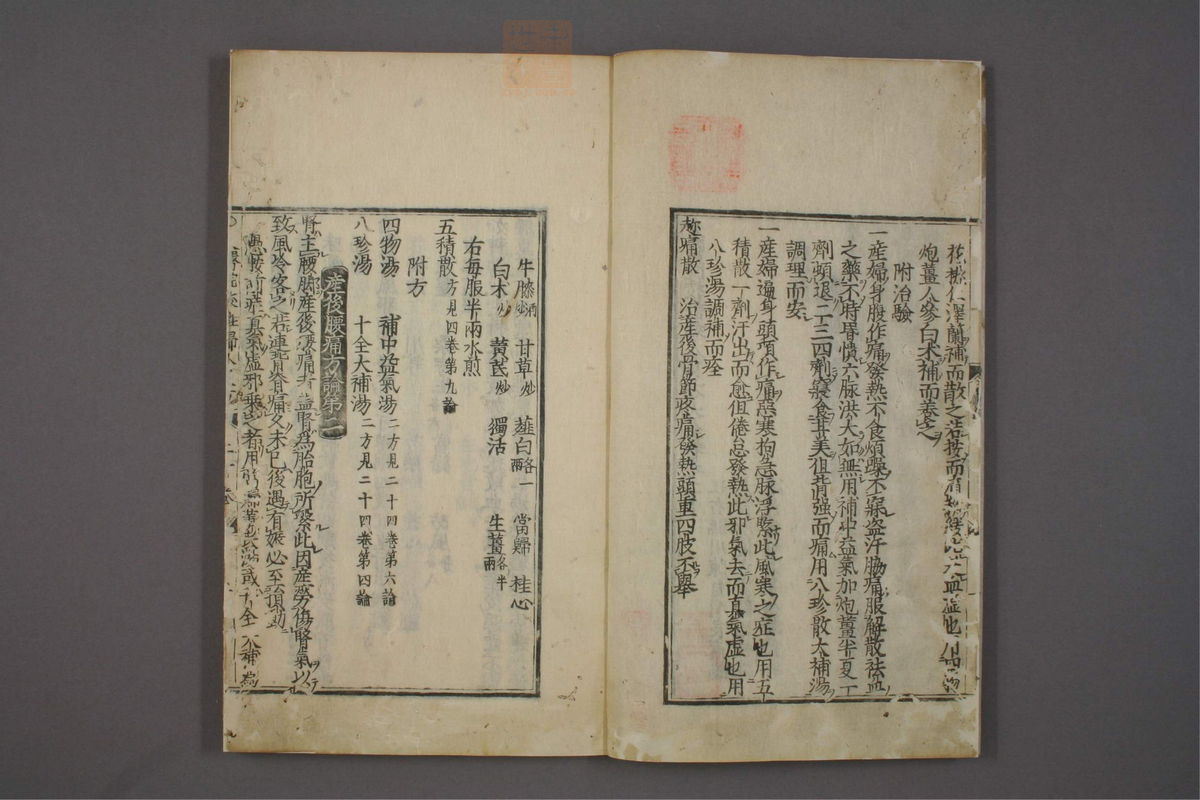 花桃仁澤蘭補而散之若按而稍緩此血虛也用四物
炮薑人參白朮補而養之
附治驗
一産婦身股作痛發熱不食煩躁不寐盗汗脇痛服解散祛血
之藥不時昏憒六脉洪大如無用補中益氣加炮薑半夏一
劑頓退二三四劑寢食甘美但背强而痛用八珍散大補湯
調理而安
一産婦遍身頭項作痛惡寒拘急脉浮緊此風寒之症也用五
積散一劑汗出而愈但倦怠發熱此邪氣去而真氣虛也用
八珍湯調補而痊
趁痛散 治産後骨節疼痛發熱頭重四肢不舉
牛膝酒炒 甘草炒 薤白各一兩 當歸 桂心
白朮炒 黄芪炒 獨活 生薑各半兩
右每服半兩水煎
五積散方見四卷第九論
附方
四物湯 補中益氣湯二方見二十四卷第六論
八珍湯 十全大補湯二方見二十四卷第四論
産後腰痛方論第二
腎主腰脚産後腰痛者蓋腎爲胎胞所繫此因産勞傷腎氣以
致風冷客之若連背脊痛久未已後遇有娠必至損動
愚按前症真氣虛邪乘之者用